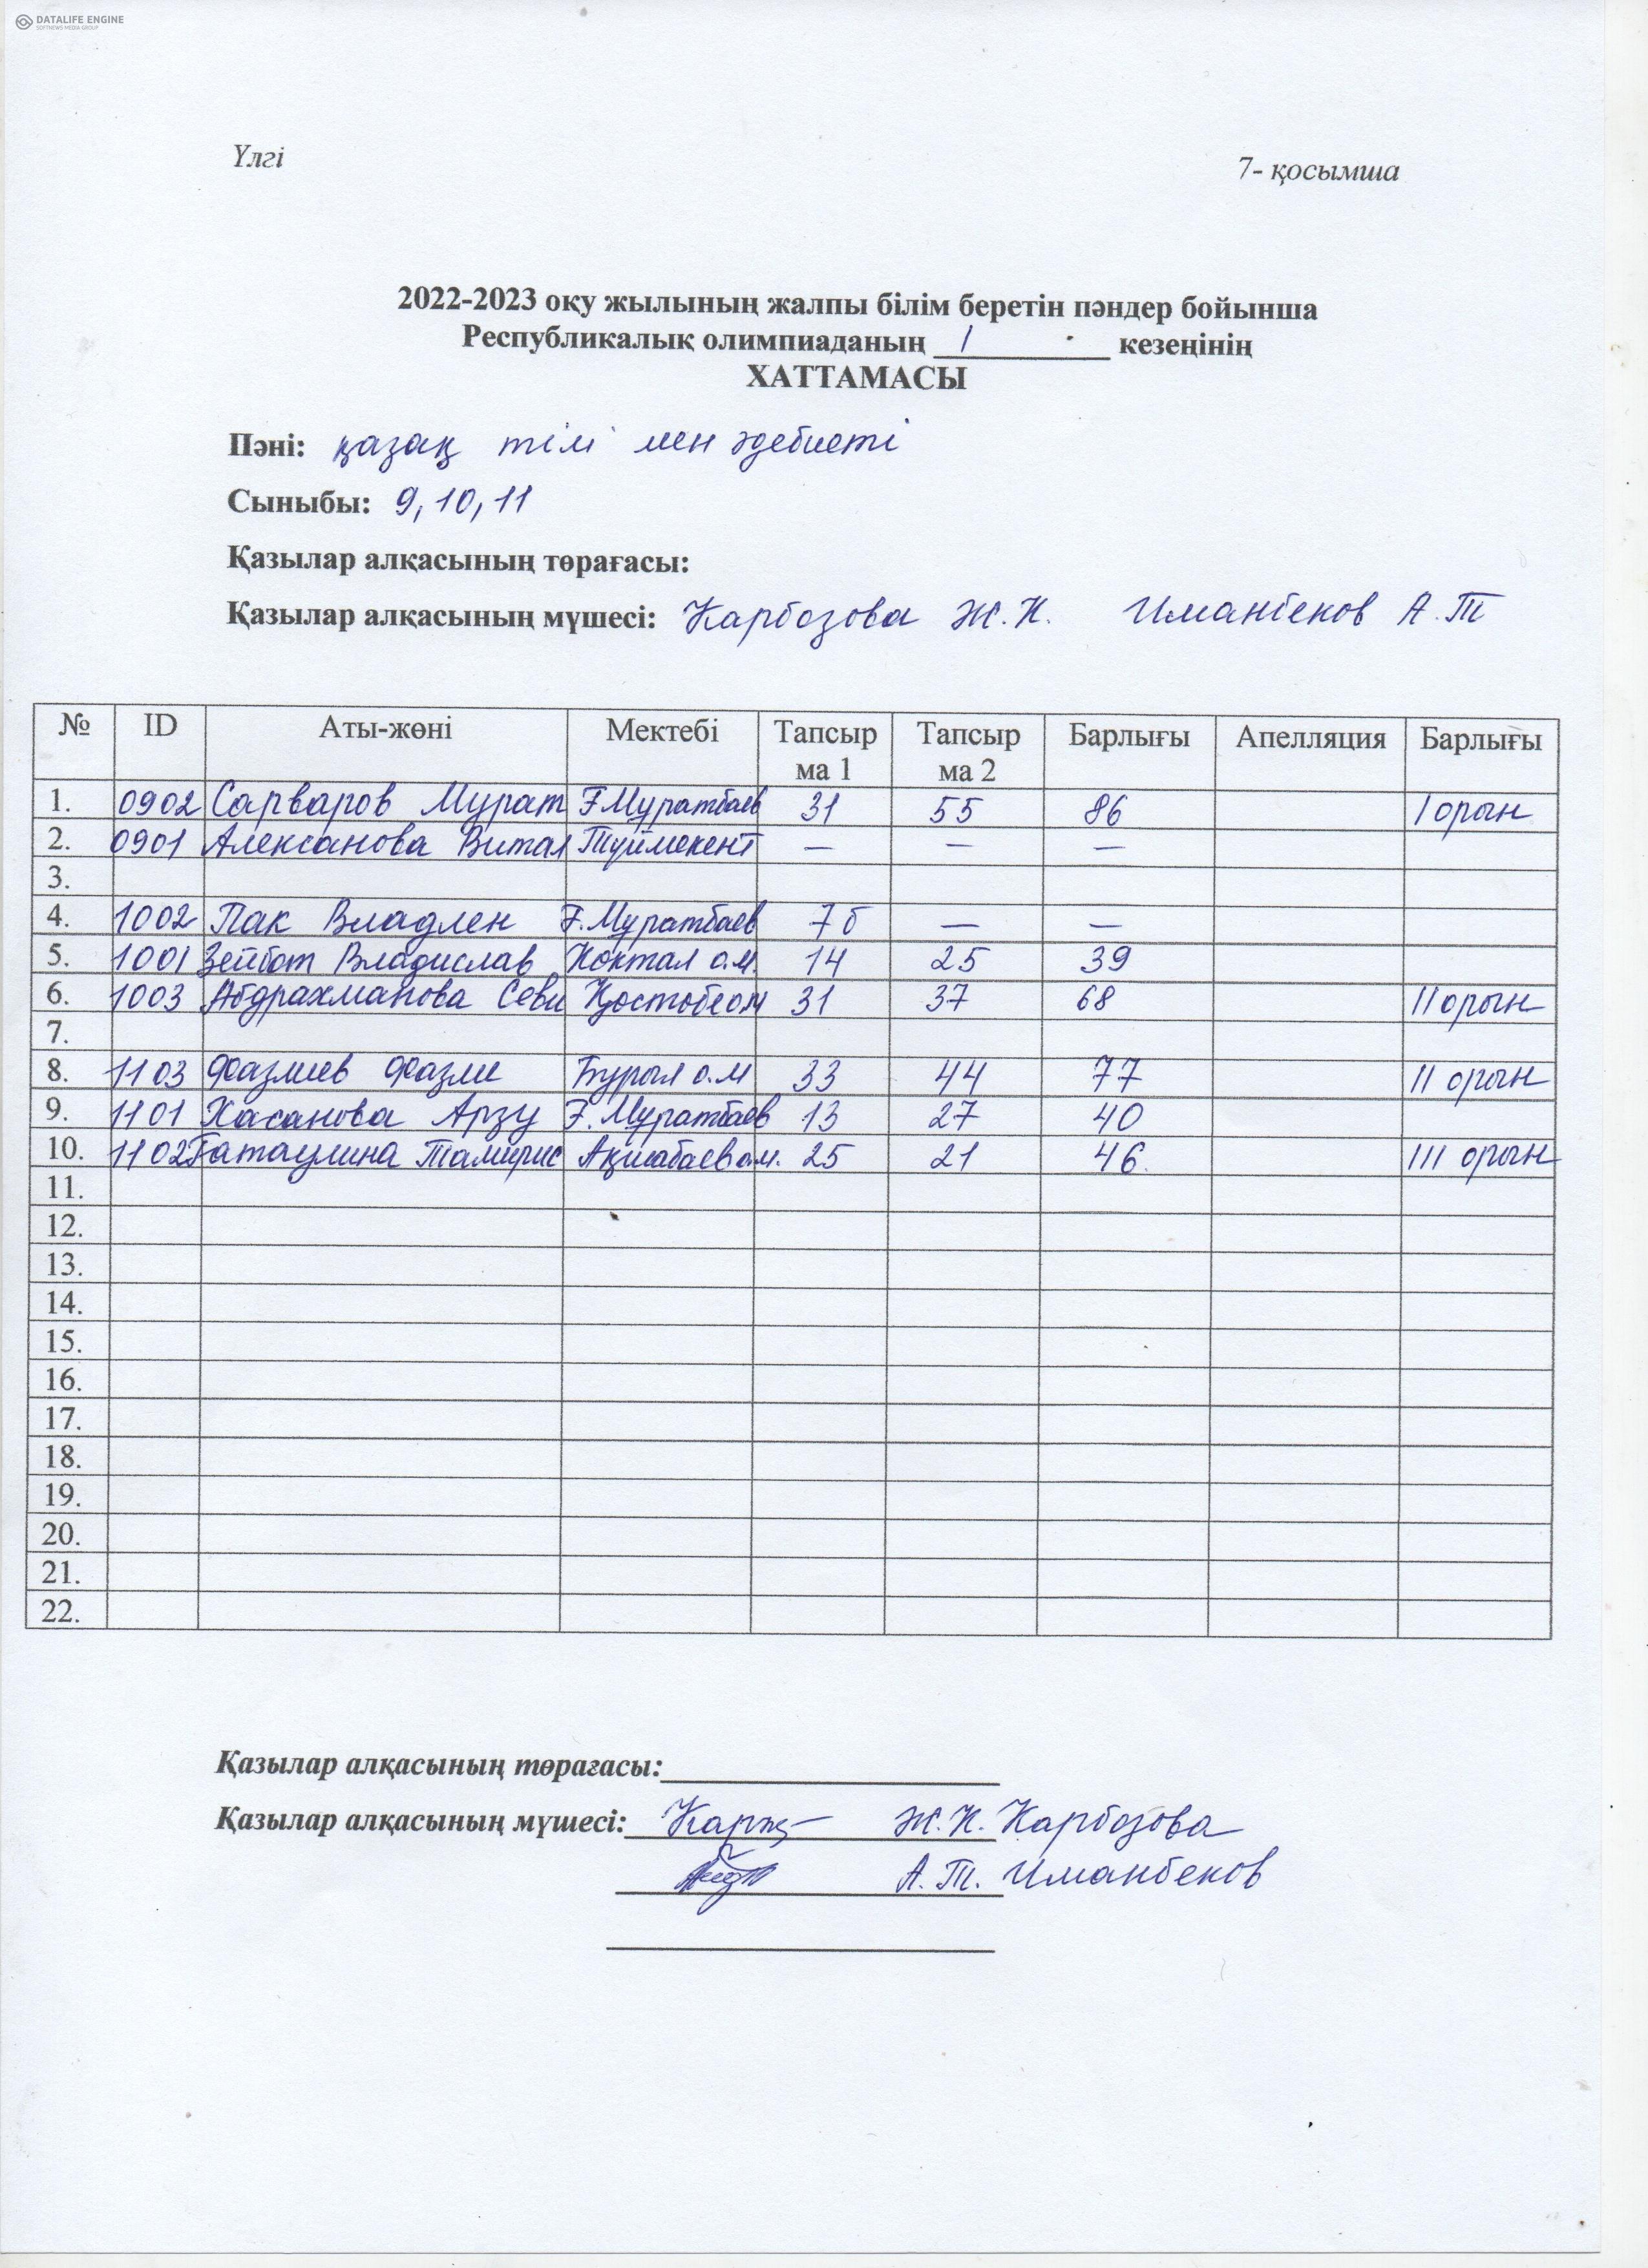 DATALIFE ENGINE
SOFTNEWS MEDIA GROUP
Үлгі 7- қосымша
2022-2023 оқу жылының жалпы білім беретін пәндер бойынша
Республикалық олимпиаданың I кезеңінің
ХАТТАМАСЫ
Пәні: қазақ тілі мен әдебиеті
Сыныбы: 9, 10, 11
Қазылар алқасының төрағасы:
Қазылар алқасының мүшесі: Карбозова Ж.К. Иманбеков А.Т
№ ID Аты-жөні Мектебі Тапсыр ма 1 Тапсыр ма 2 Барлығы Апелляция Барлығы
1. 0902 Сарваров Мурат Ғ.Мұратбаев 31 55 86 I орын
2. 0901 Алексанова Витал Түймекент — — —
3.
4. 1002 Пак Владлен Ғ.Мұратбаев 7 б — —
5. 1001 Зейбот Владислав Көктал о.м. 14 25 39
6. 1003 Абдрахманова Севи Қостөбе ом 31 37 68 II орын
7.
8. 1103 Фазлиев Фазли Бурыл о.м 33 44 77 II орын
9. 1101 Хасанова Арзу Ғ.Мұратбаев 13 27 40
10. 1102 Гатаулина Тамирис 25 21 46. III орын
11.
12.
13.
14.
15.
16.
17.
18.
19.
20.
21.
22.
Қазылар алқасының төрағасы:
Қазылар алқасының мүшесі: Ж.К. Карбозова
А.Т. Иманбеков